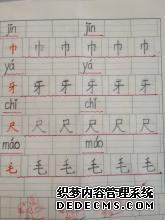 jīn jīn
巾 巾 巾 巾 巾 巾
yá yá
牙 牙 牙 牙 牙 牙
chǐ chǐ
尺 尺 尺 尺 尺 尺
máo máo
毛 毛 毛 毛 毛 毛
织梦内容管理系统
DEDECMS.COM